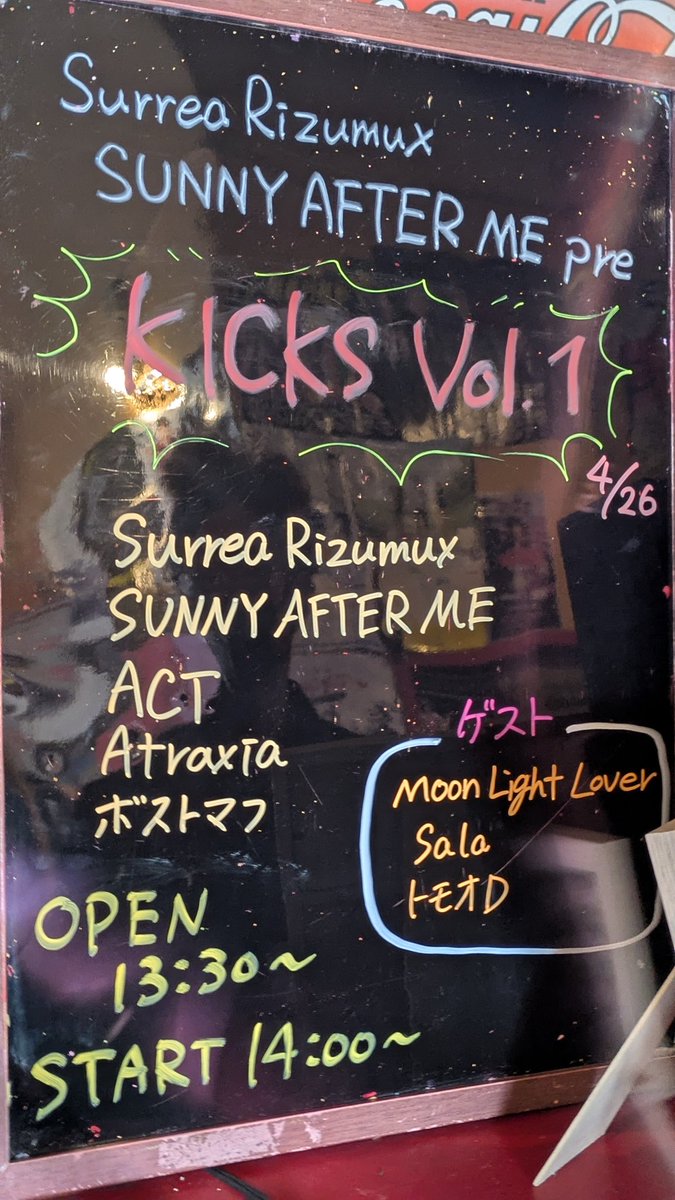 Surrea Rizumux
SUNNY AFTER ME pre
KICKS Vol.1
4/26
Surrea Rizumux
SUNNY AFTER ME
ACT
Atraxia
ボストマフ
ゲスト
Moon Light Lover
Sala
トモオD
OPEN
13:30~
START 14:00~